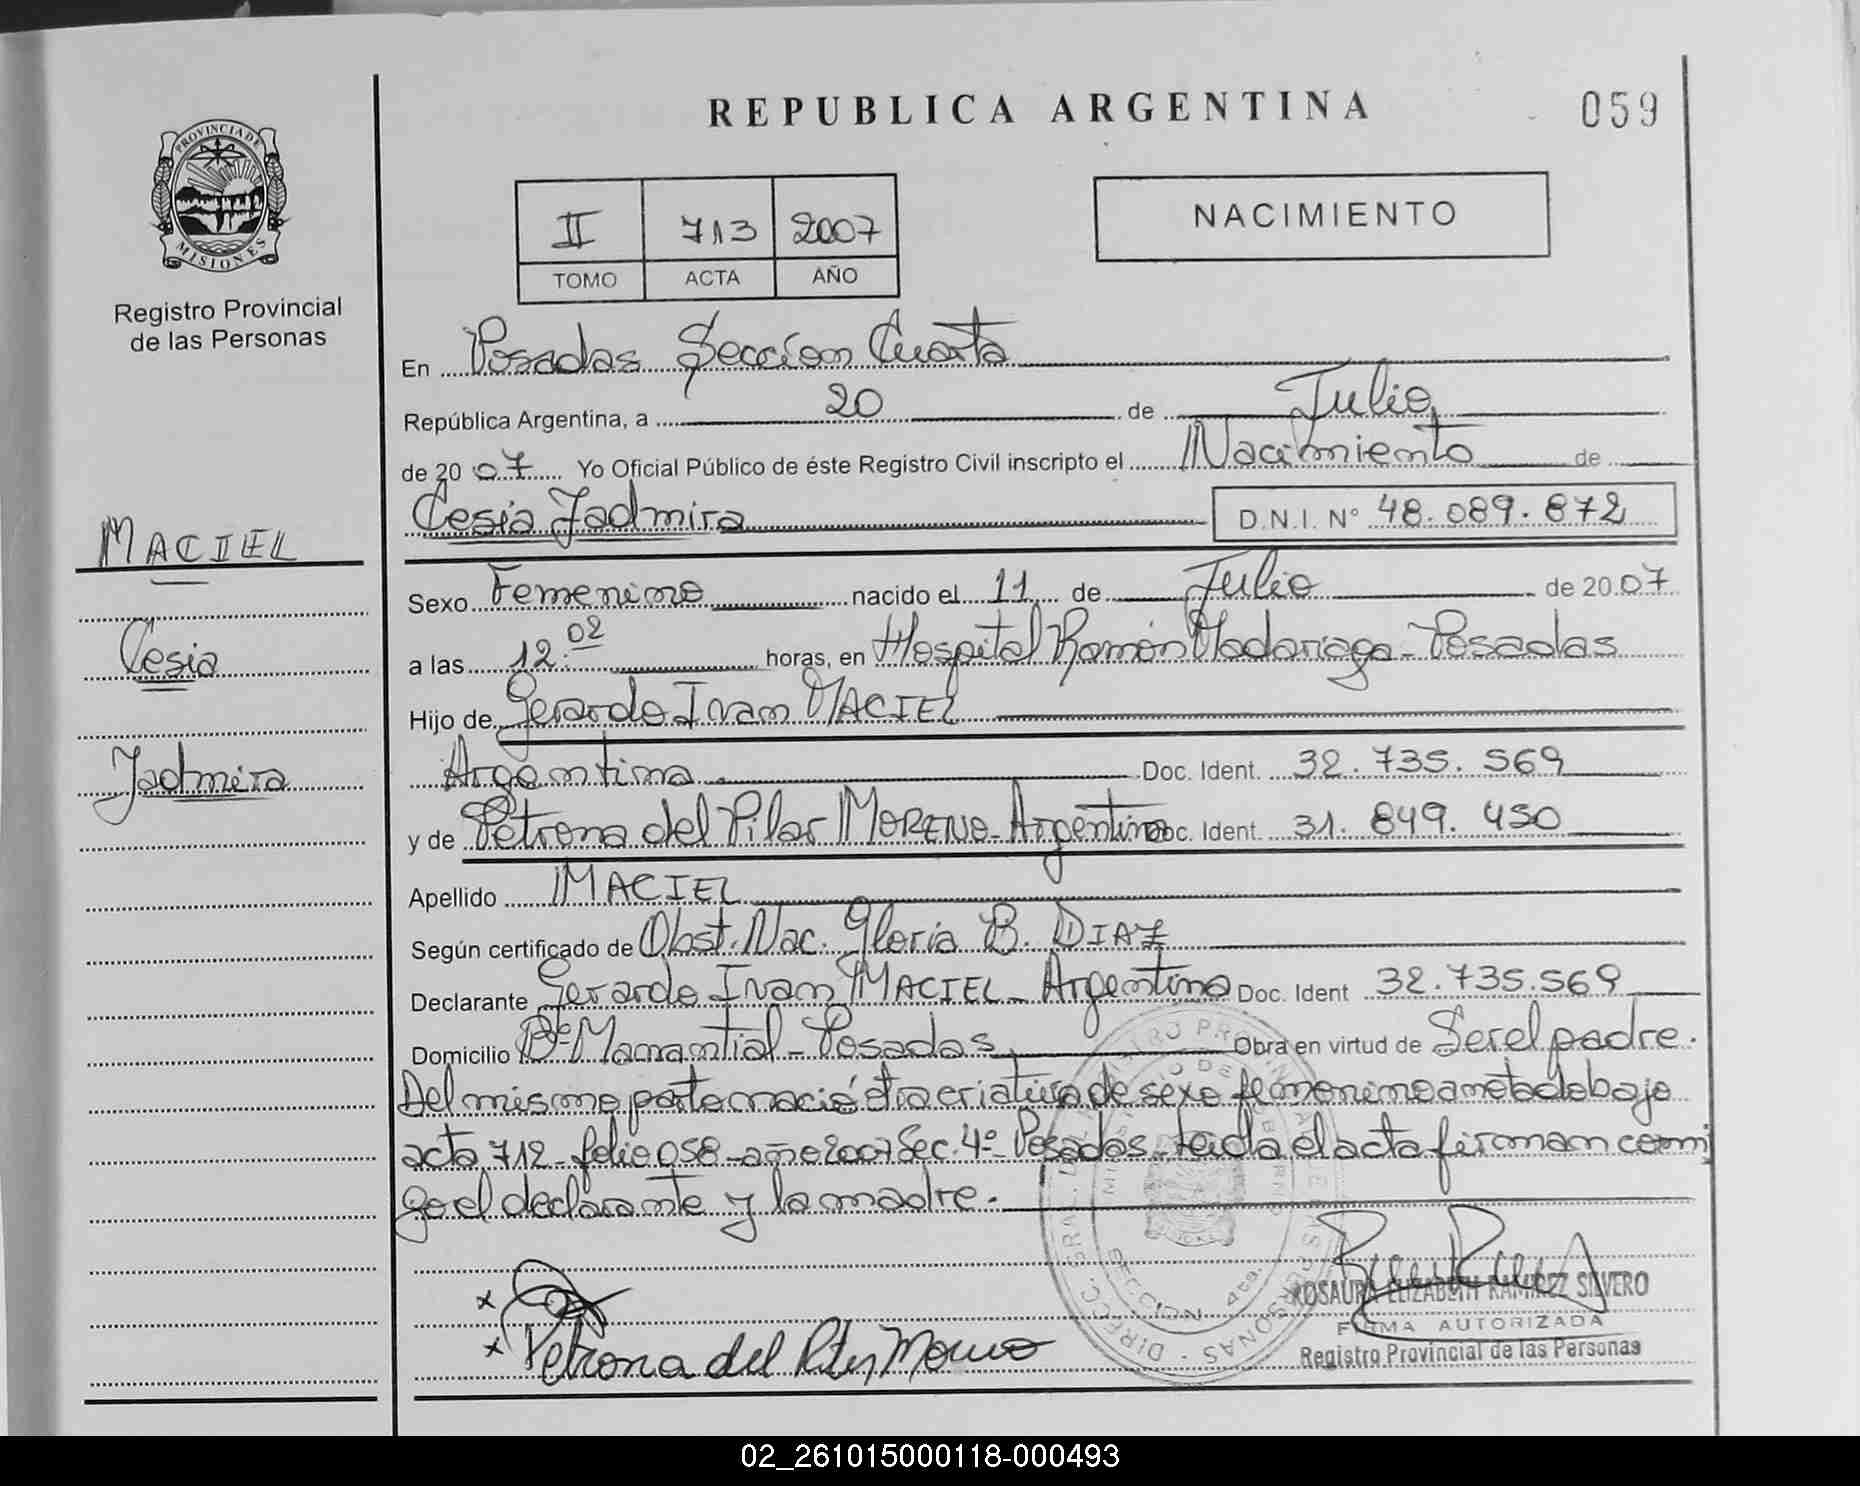 REPUBLICA ARGENTINA
059
PROVINCIA DE
MISIONES
Registro Provincial
de las Personas
II 713 2007
TOMO ACTA AÑO
NACIMIENTO
En Posadas Sección Cuarta
República Argentina, a 20 de Julio
de 20 07 Yo Oficial Público de éste Registro Civil inscripto el Nacimiento de
Cesia Jadmira D.N.I. N° 48.089.872
MACIEL
Cesia
Jadmira
Sexo Femenino nacido el 11 de Julio de 20 07
a las 12:02 horas, en Hospital Ramón Madariaga - Posadas
Hijo de Gerardo Ivan MACIEL
Argentina Doc. Ident. 32.735.569
y de Petrona del Pilar MORENO - Argentina Doc. Ident. 31.849.450
Apellido MACIEL
Según certificado de Obst. Nac. Gloria B. DIAZ
Declarante Gerardo Ivan MACIEL - Argentino Doc. Ident 32.735.569
Domicilio B° Manantial - Posadas Obra en virtud de Ser el padre.
Del mismo parto nació otra criatura de sexo femenino anotado bajo
acta 712 - folio 058 - año 2007 Sec. 4° Posadas - Leida el acta firman conmi
go el declarante y la madre.
x
x Petrona del Pilar Moreno
SECCION 4ta.
ROSAURA ELIZABETH RAMIREZ SILVERO
FIRMA AUTORIZADA
Registro Provincial de las Personas
02_261015000118-000493